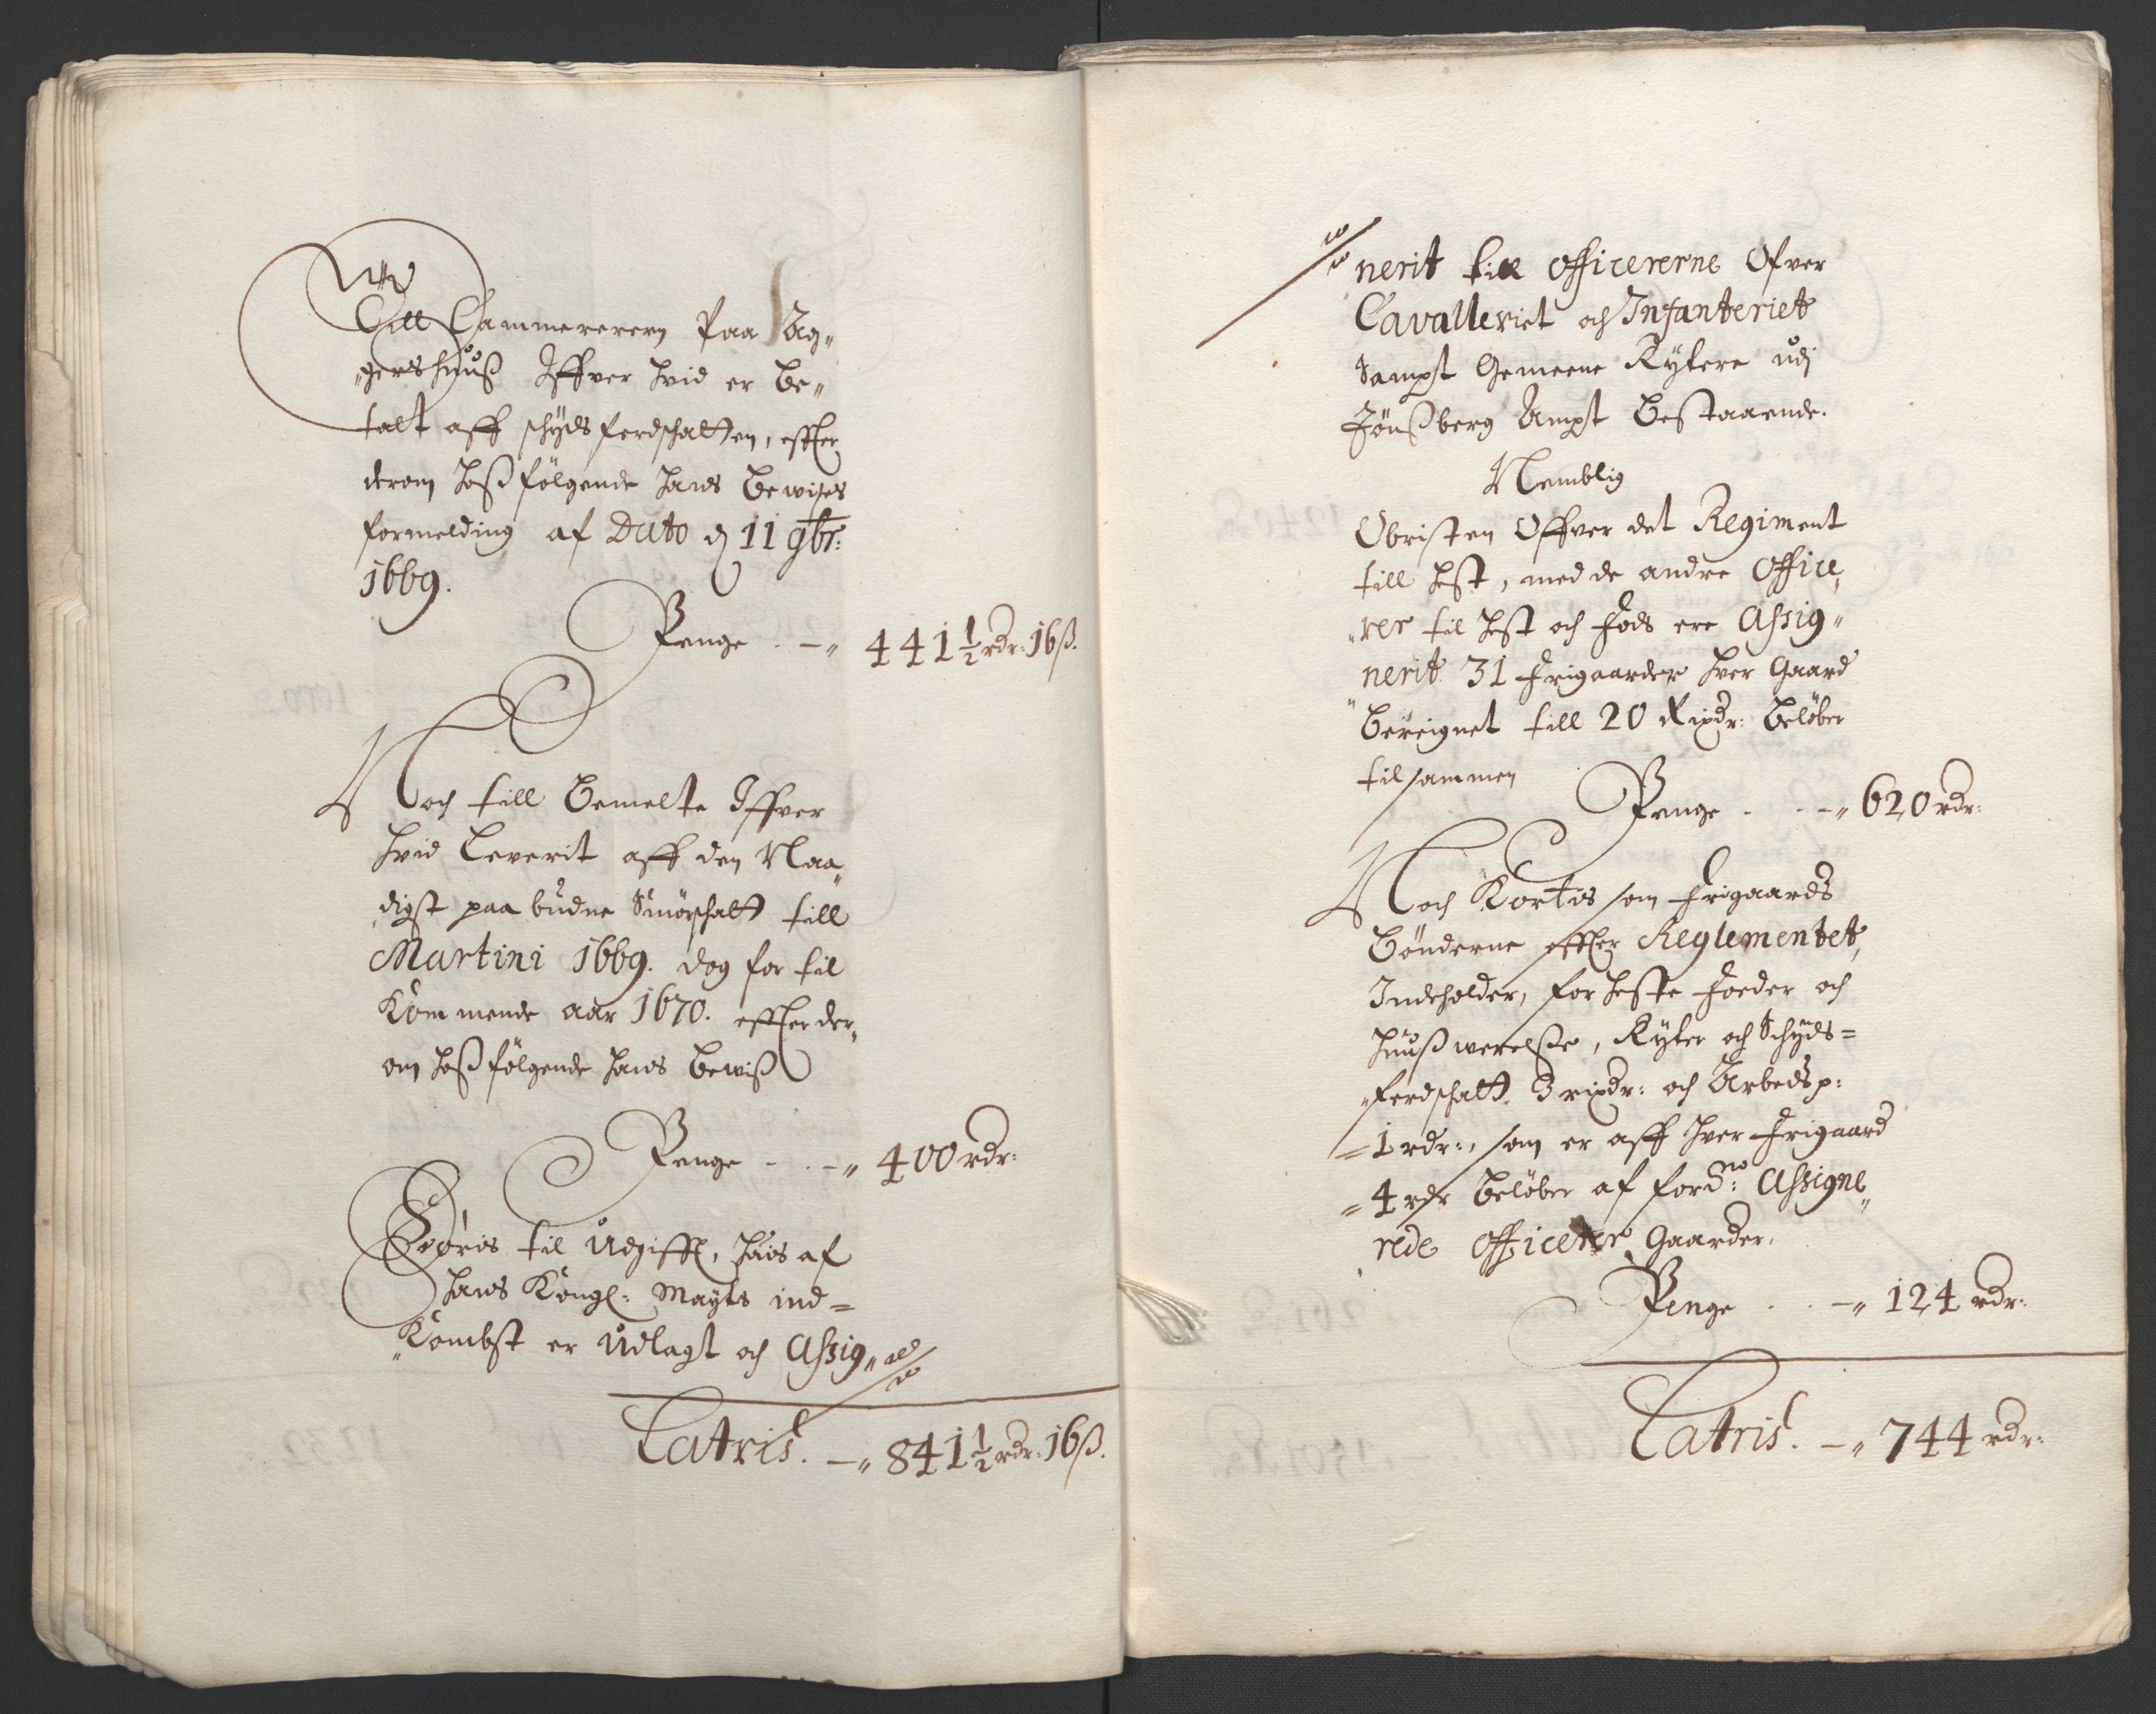 Till Cammereren Paa Ag„
„gershuuß Iffver Hvid er be„
talt aff schydsferdschatten, effter
derom hoßfölgende hans bewises
formelding af Dato d 11 9br:
1669.
Penge . –„ 441½ rdr: 16 ß.
Noch till bemelte Iffver
Hvid leverit aff den Naa„
digst paa budne Smörschatt till
Martini 1669. dog for til
Kommende aar 1670. effter der„
om hoßföl​gende hans bewiß
Penge - . –„ 400 rdr:
Föris til Udgifft, som af
Hans Kongl: Mayts ind=
„Kombst er Udlagt och Assig„
Latris. –„ 841½ rdr: 16 ß.
nerit till officererne Ofver
Cavalleriet och Infanteriet
Sampt Gemeene Rytere udj
Jönßberg Ampt Bestaaende.
Nemblig
Obristen Offver det Regiment
till Hest, med de andre Office„
„rer til Hest och Fods ere Assig„
„nerit 31 Frigaarder hver Gaard
Bereignet till 20 Rixdr: belöber
tilsammen
Penge - . –„ 620 rdr:
Noch Kortis som Frigaards
Bönderne effter Reglementet,
Indeholder, for Heste Foeder och
Huuß werelße, Rytter och Schyds=
„ferdschatt 3 rixdr: och Arbeds p:
=1 rdr:, som er aff hver Frigaard
=4 rdr belöber af ford:ne Assigne„
rede officerer Gaarder.
Penge . . –„ 124 rdr:
Latris. –„ 744 rdr: